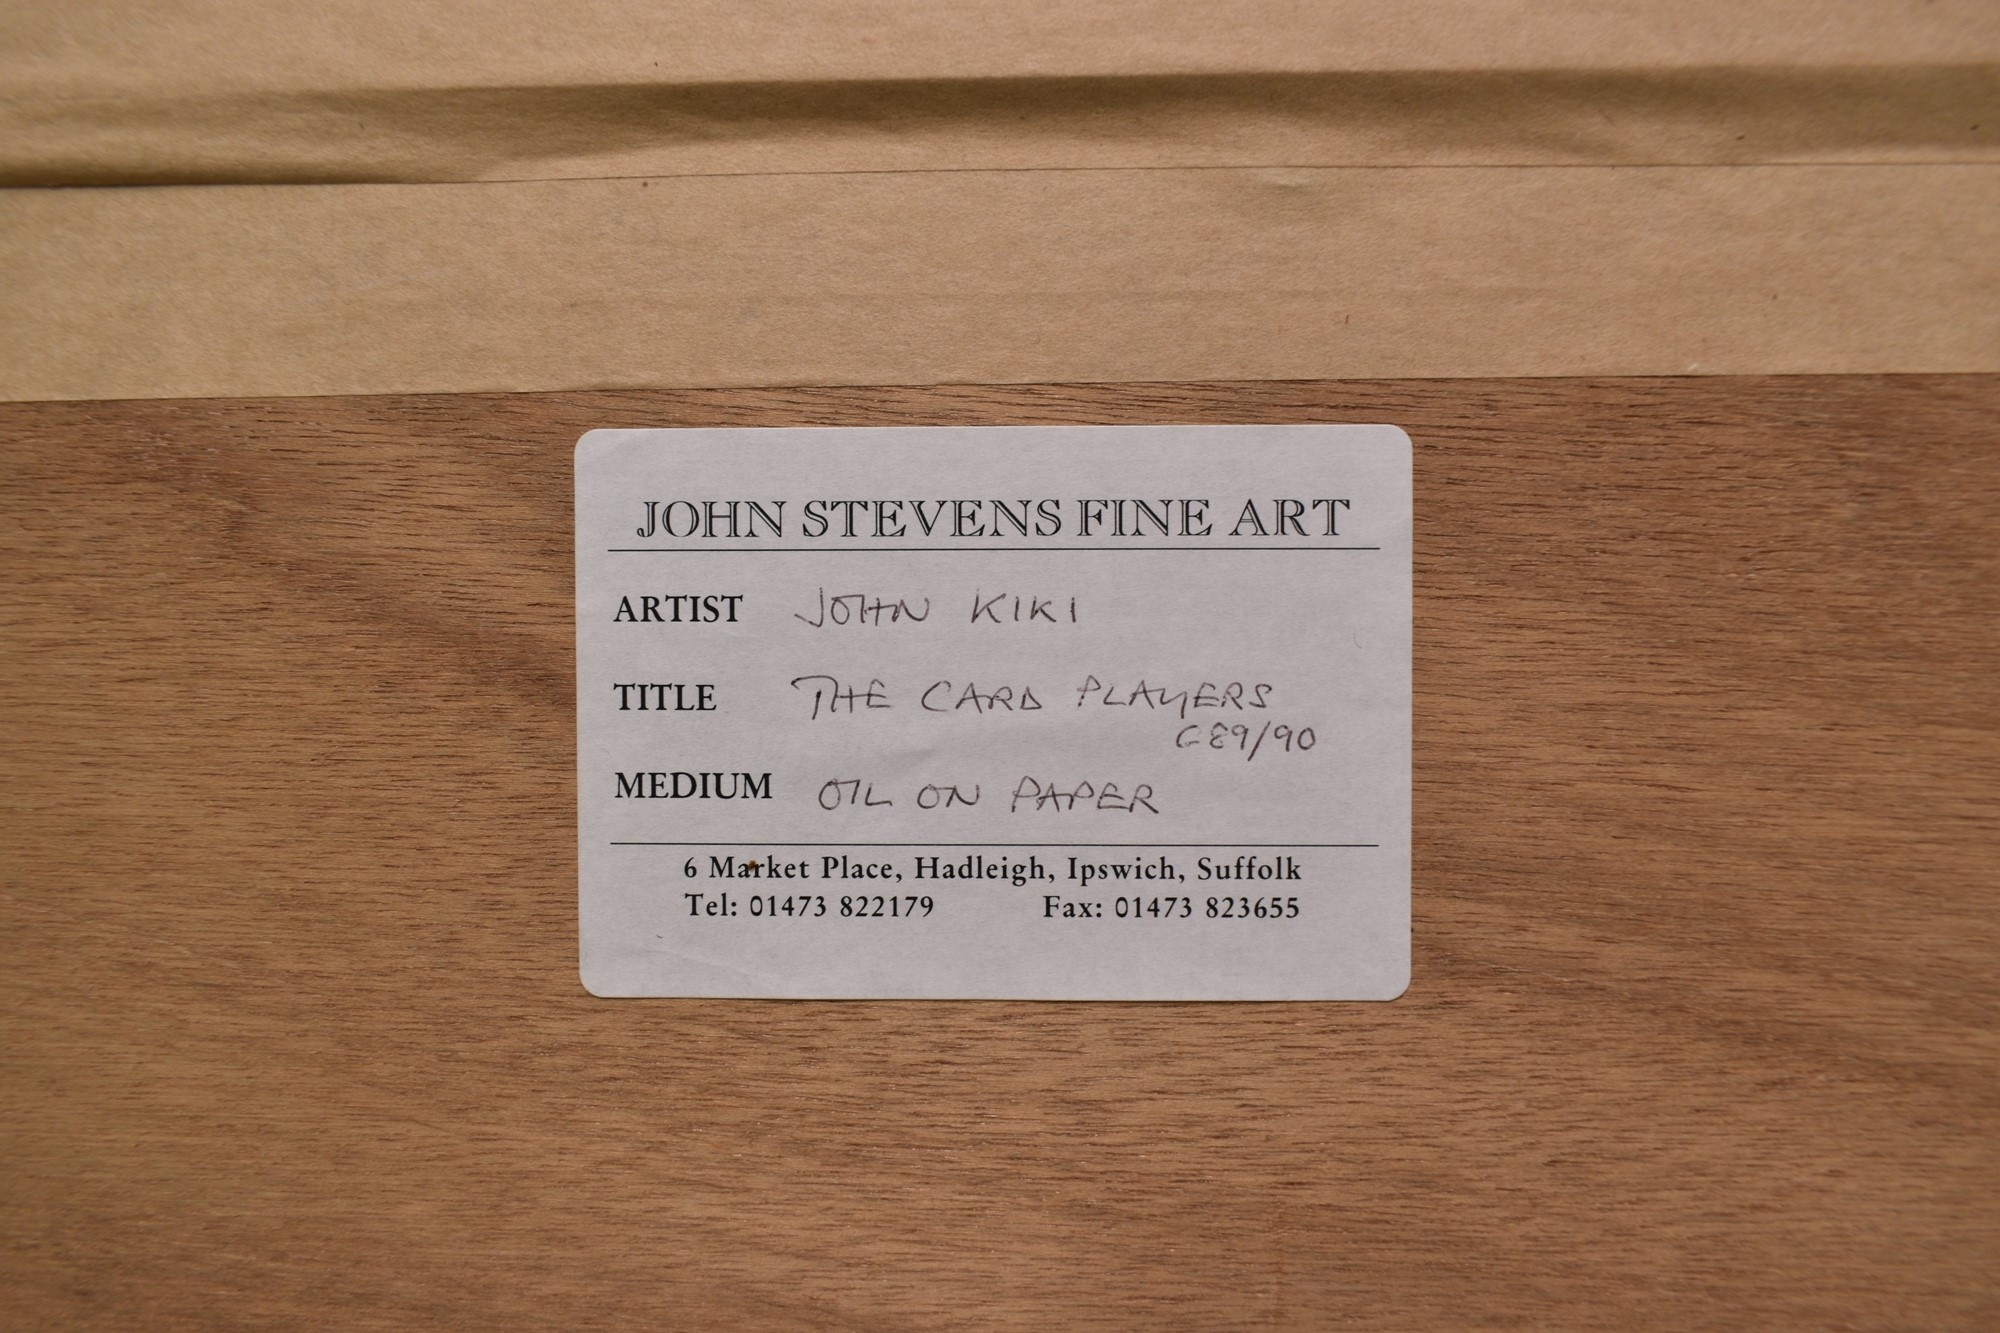 JOHN STEVENS FINE ART
ARTIST JOHN KIKI
TITLE THE CARD PLAYERS
C89/90
MEDIUM OIL ON PAPER
6 Market Place, Hadleigh, Ipswich, Suffolk
Tel: 01473 822179 Fax: 01473 823655